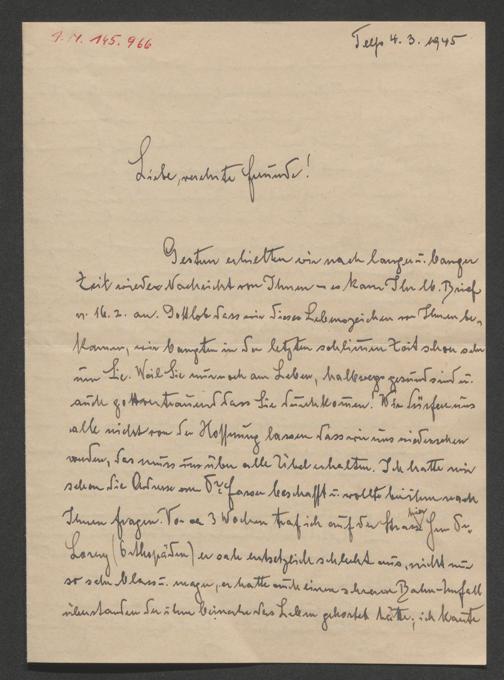 I. N. 145.966
Telfs 4. 3. 1945
Liebe, verehrte Freunde!
Gestern erhielten wir nach langer u. banger
Zeit wieder Nachricht von Ihnen – es kam Ihr lb. Brief
v. 16. 2. an. Gottlob dass wir dieses Lebenszeichen von Ihnen be-
kamen, wir bangten in der letzten schlimmen Zeit schon sehr
um Sie. Weil Sie nur noch am Leben, halbwegs gesund sind u.
auch gottvertrauend dass Sie durchkommen! Wir dürfen uns
alle nicht von der Hoffnung lassen dass wir uns wiedersehen
werden, das muss uns über alle Übel erhalten. Ich hatte mir
schon die Adresse von Dr. Gasser beschafft u. wollte bei ihm nach
Ihnen fragen. Vor ca 3 Wochen traf ich auf der Strasse hier Herrn Dr.
Lorenz (Orthopäden) er sah entsetzlich schlecht aus, nicht nur
so sehr blass u. mager, er hatte auch einen schweren Bahn-Unfall
überstanden der ihm beinahe das Leben gekostet hätte; ich kannte